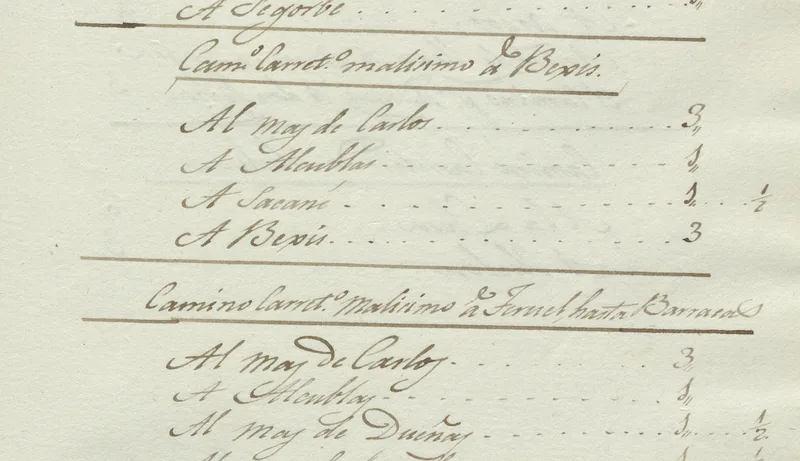 A Segorbe . . . . . . . . . . 3„
Cam.º Carret.º malisimo à Bexis.
Al mas de Carlos . . . . . . . . . . 3„
A Alcublas . . . . . . . . . . 1„
A Sacané . . . . . . . . . . 1„ . . . ½
A Bexis . . . . . . . . . . 3
Camino Carret.º Malisimo à Teruel hasta Barracas
Al mas de Carlos . . . . . . . . . . 3„
A Alcublas . . . . . . . . . . 1„
Al mas de Dueñas . . . . . . . . . . 1„ . . . ½